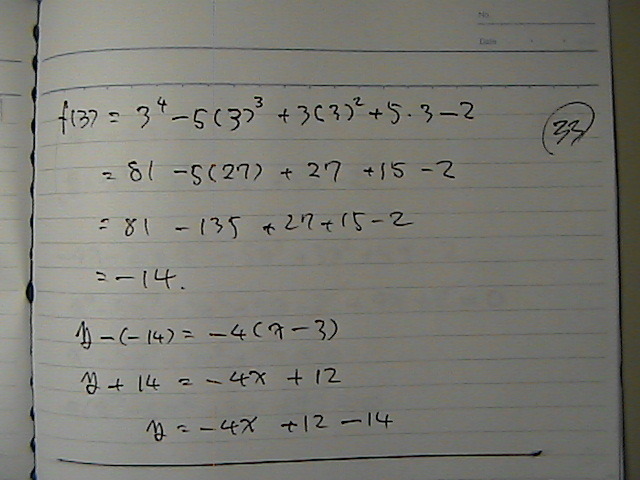 No.
Date
f(3) = 3⁴ - 5(3)³ + 3(3)² + 5 · 3 - 2
33
= 81 - 5(27) + 27 + 15 - 2
= 81 - 135 + 27 + 15 - 2
= -14.
y - (-14) = -4(x - 3)
y + 14 = -4x + 12
y = -4x + 12 - 14